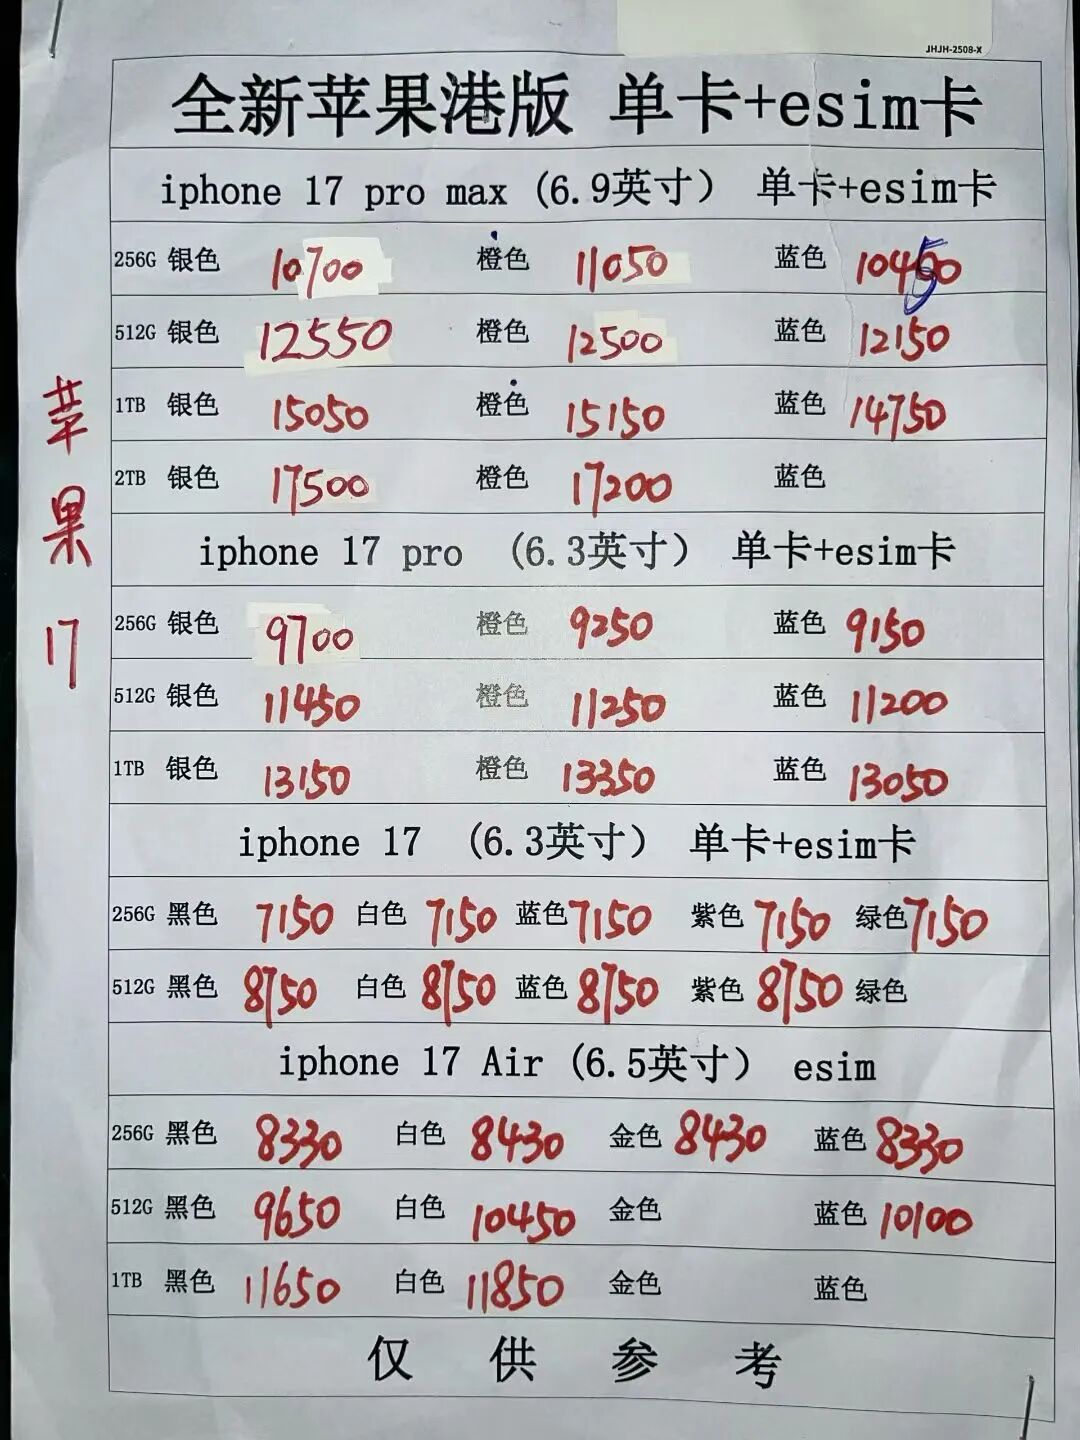 JHJH-2508-X
全新苹果港版 单卡+esim卡
iphone 17 pro max (6.9英寸） 单卡+esim卡
256G 银色 10700 橙色 11050 蓝色
512G 银色 12550 橙色 12500 蓝色 12150
1TB 银色 15050 橙色 15150 蓝色 14750
2TB 银色 17500 橙色 17200 蓝色
iphone 17 pro （6.3英寸） 单卡+esim卡
256G 银色 9700 橙色 9250 蓝色 9150
512G 银色 11450 橙色 11250 蓝色 11200
1TB 银色 13150 橙色 13350 蓝色 13050
iphone 17 （6.3英寸） 单卡+esim卡
256G 黑色 7150 白色 7150 蓝色 7150 紫色 7150 绿色 7150
512G 黑色 8750 白色 8750 蓝色 8750 紫色 8750 绿色
iphone 17 Air (6.5英寸） esim
256G 黑色 8330 白色 8430 金色 8430 蓝色 8330
512G 黑色 9650 白色 10450 金色 蓝色 10100
1TB 黑色 11650 白色 11850 金色 蓝色
仅供参考
苹果17